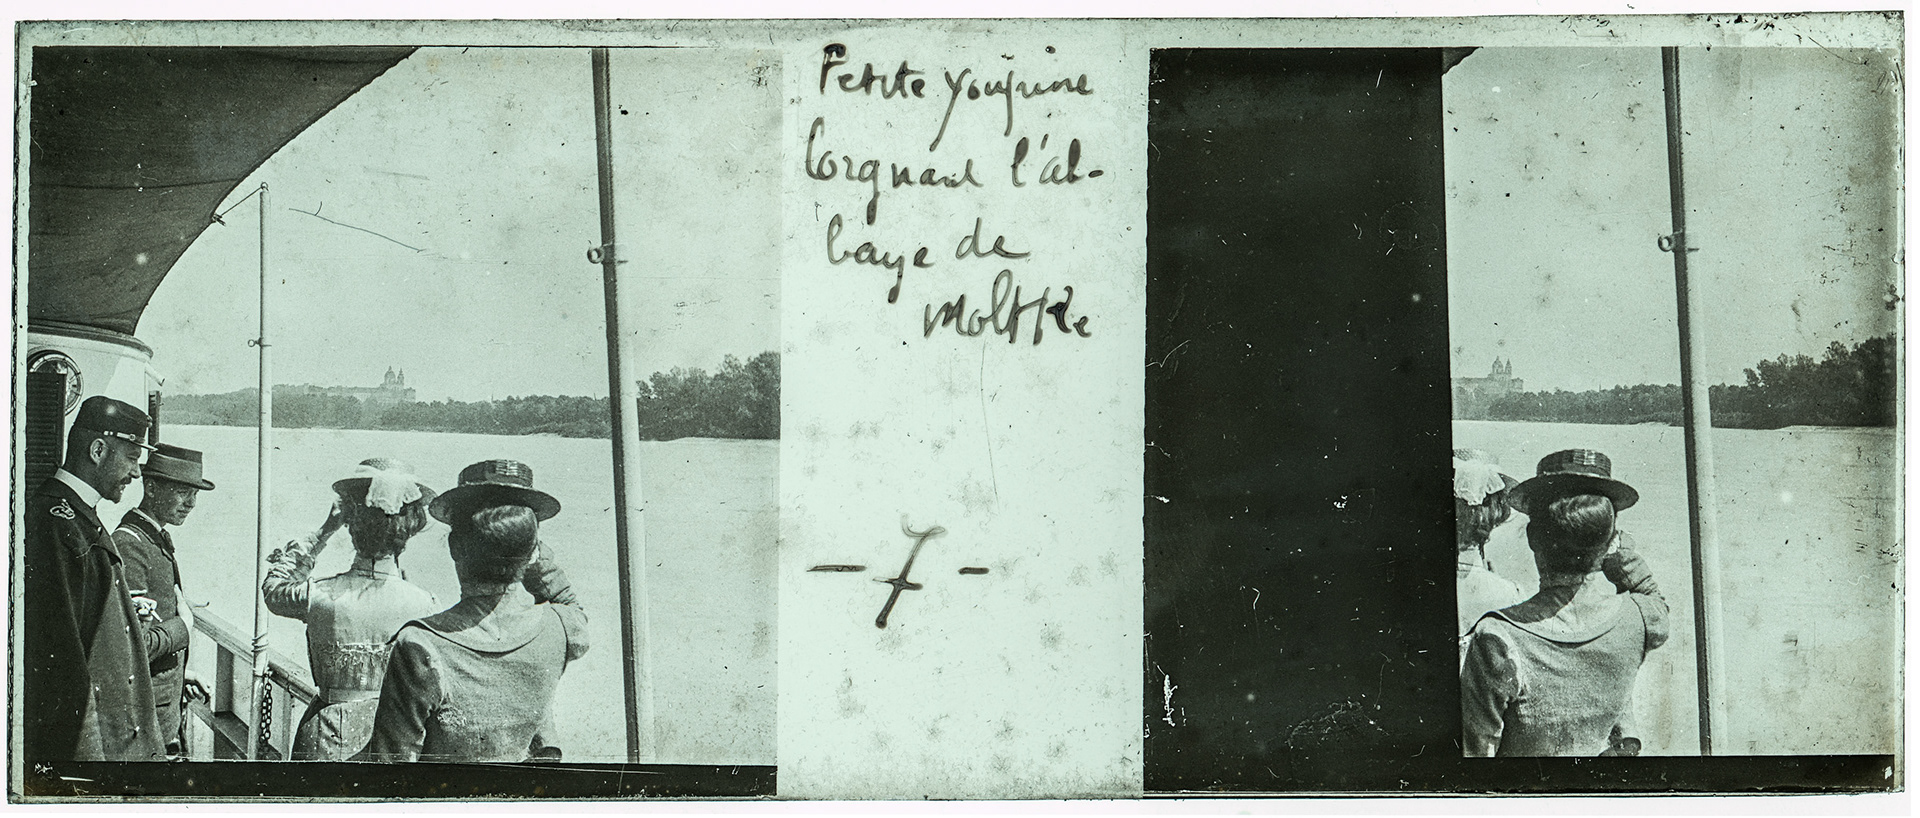 Petite youpine
lorgnant l'ab-
baye de
Moltke
- 7 -